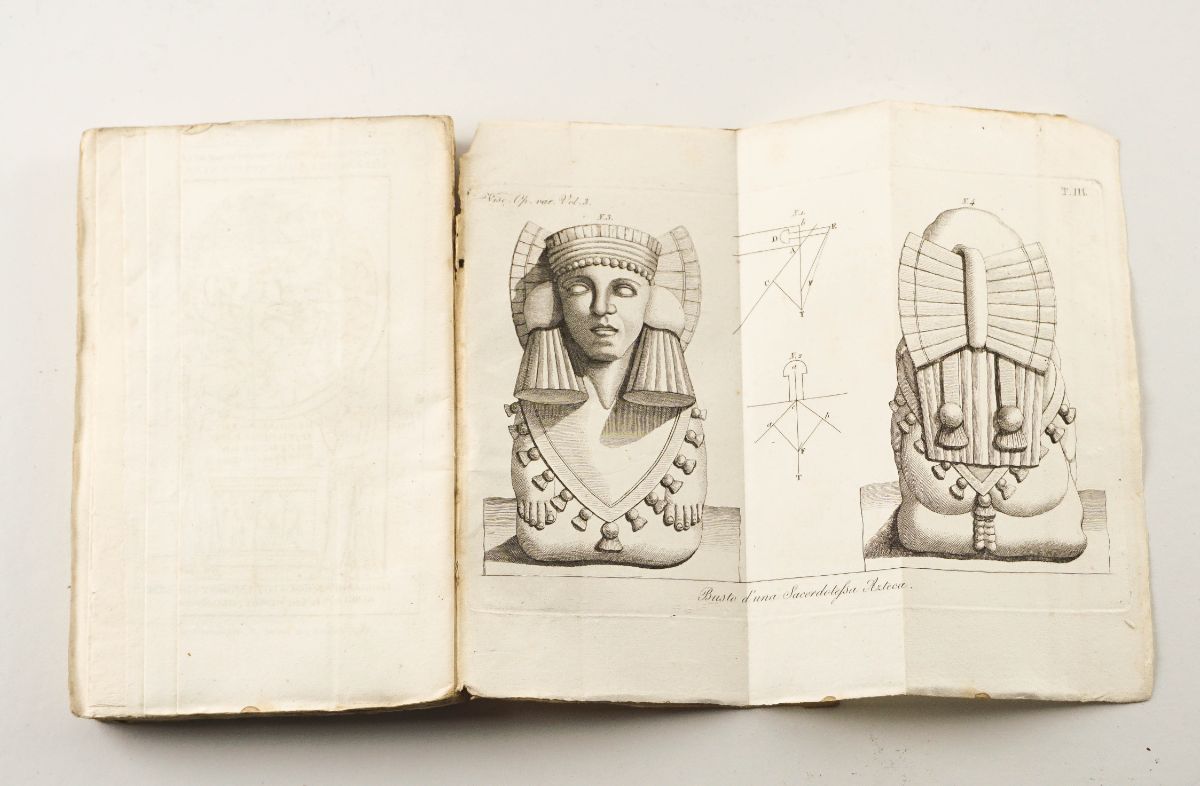 Visc. Op. var. Vol. 3.
T. III.
N. 3.
N. 1
b
D
E
A
C
F
T
N. 2
a
c
a
b
F
T
N. 4
Busto d'una Sacerdoteſsa Azteca.